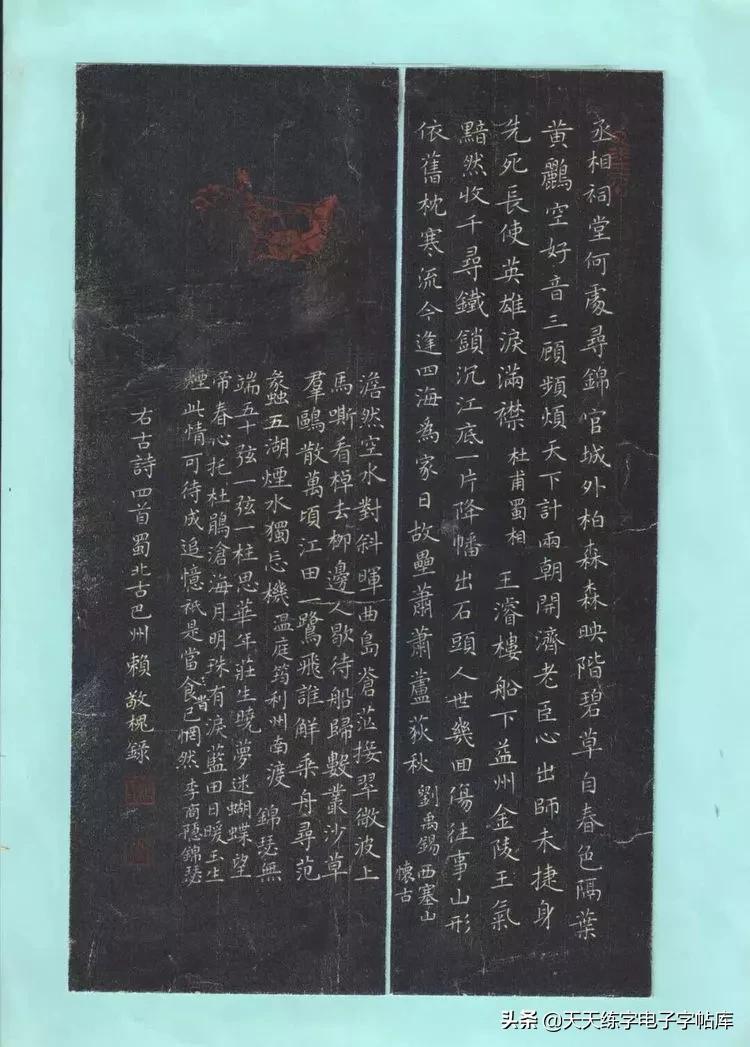 丞相祠堂何處尋錦官城外柏森森映階碧草自春色隔葉
黃鸝空好音三顧頻煩天下計兩朝開濟老臣心出師未捷身
先死長使英雄淚滿襟 杜甫蜀相 王濬樓船下益州金陵王氣
黯然收千尋鐵鎖沉江底一片降幡出石頭人世幾回傷往事山形
依舊枕寒流今逢四海為家日故壘蕭蕭蘆荻秋 劉禹錫 西塞山
懷古
澹然空水對斜暉曲島蒼茫接翠微波上
馬嘶看棹去柳邊人歇待船歸數叢沙草
羣鷗散萬頃江田一鷺飛誰解乘舟尋范
蠡五湖煙水獨忘機溫庭筠利州南渡 錦瑟無
端五十弦一弦一柱思華年莊生曉夢迷蝴蝶望
帝春心托杜鵑滄海月明珠有淚藍田日暖玉生
煙此情可待成追憶衹是當食已惘然 李商隱錦瑟
右古詩四首蜀北古巴州賴敬槐錄
头条 @天天练字电子字帖库